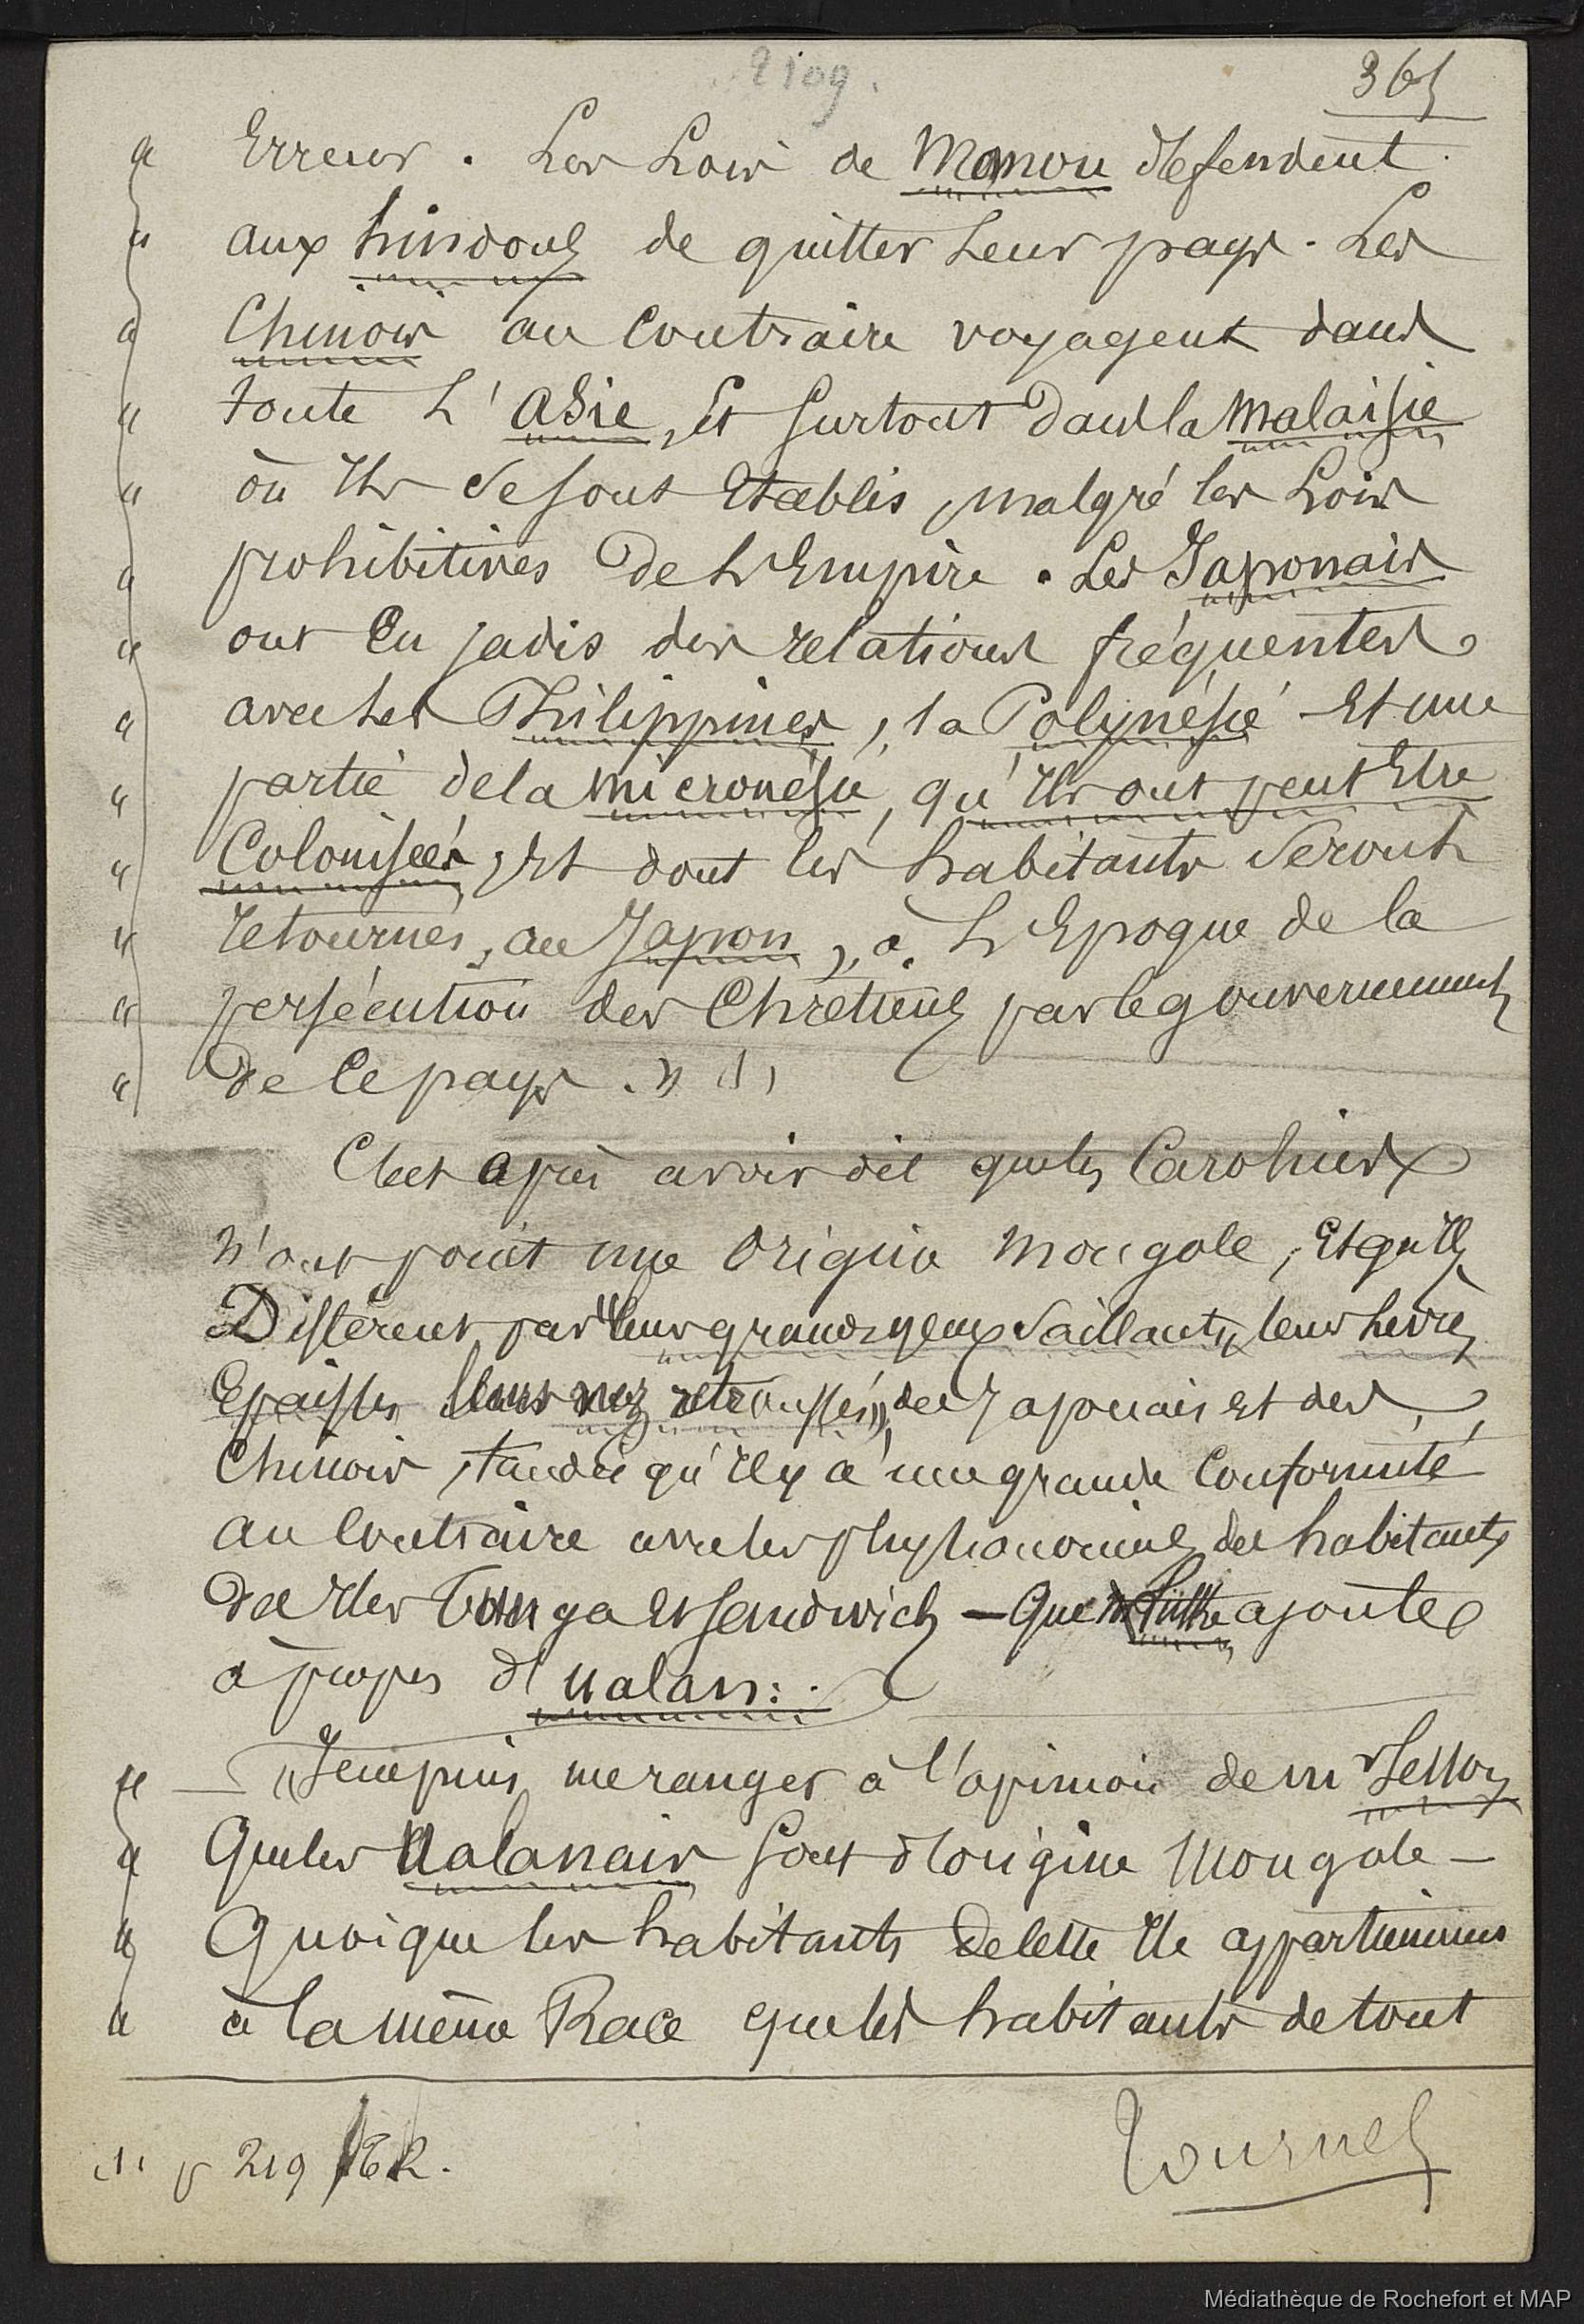 2109.
365
" Erreur. Les Lois de Manou defendent
" aux hindous de quitter Leur pays. Les
" Chinois au Contraire voyagent dans
" toute L'Asie, Et Surtout Dans la Malaisie
" où Ils se sont Etablis, malgré les Lois
" prohibitives De L'Empire. Les Japonais
" ont Eu jadis des relations fréquentes
" avec Les Philippines, la Polynésie Et une
" partie de la micronésie, qu'Ils ont peut Etre
" Colonisées, Et dont les habitants Seront
" retournés, au Japon, à L'Epoque de la
" persécution des Chrétiens par le gouvernement
" De Ce pays. » (1)
C'est après avoir dit que les Carolines
n'ont point une Origine Mongole, Et qu'Ils
Diffèrent par "leurs grands yeux Saillants, leurs lèvres
Epaisses leurs nez retroussés", des Japonais Et des
Chinois, tandis qu'Il y a une grande Conformité
au Contraire avec les physionomies des habitants
des Iles Tonga Et Sandwich — Que Lutke ajoute
à propos d'ualan:
" — "Je ne puis me ranger à l'opinion de Mr Lesson
" Que les Ualanais Sont d'origine Mongole —
" Quoique les habitants De Cette Ile appartiennent
" à la même Race que les habitants de tout
(1) p 219 T 2.
Tournez
Médiathèque de Rochefort et MAP